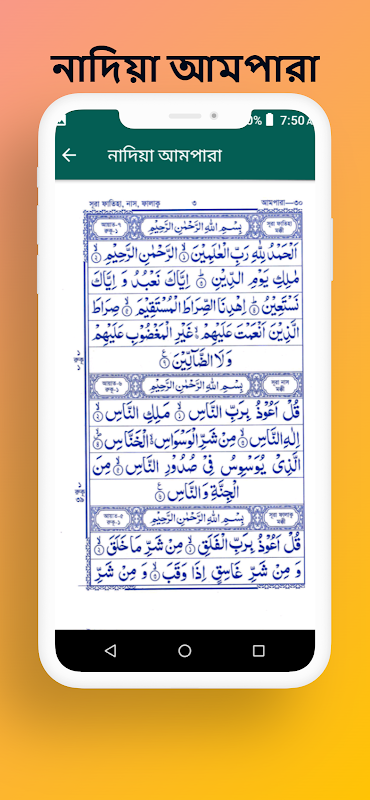 নাদিয়া আমপারা
0% 7:50
নাদিয়া আমপারা
সূরা ফাতিহা, নাস, ফালাক্ব ৩ আমপারা—৩০
আয়াত-৭ রুকু-১ بِسْمِ اللهِ الرَّحْمٰنِ الرَّحِيْمِ সূরা ফাতিহা মক্কী
اَلْحَمْدُ لِلّٰهِ رَبِّ الْعٰلَمِيْنَ ۙ الرَّحْمٰنِ الرَّحِيْمِ ۙ
مٰلِكِ يَوْمِ الدِّيْنِ ؕ اِيَّاكَ نَعْبُدُ وَ اِيَّاكَ
نَسْتَعِيْنُ ؕ اِهْدِنَا الصِّرَاطَ الْمُسْتَقِيْمَ ۙ صِرَاطَ
الَّذِيْنَ اَنْعَمْتَ عَلَيْهِمْ ۙ غَيْرِ الْمَغْضُوْبِ عَلَيْهِمْ
وَلَا الضَّآلِّيْنَ
আয়াত-৬ রুকু-১ بِسْمِ اللهِ الرَّحْمٰنِ الرَّحِيْمِ সূরা নাস মক্কী
قُلْ اَعُوْذُ بِرَبِّ النَّاسِ ۙ مَلِكِ النَّاسِ ۙ
اِلٰهِ النَّاسِ ۙ مِنْ شَرِّ الْوَسْوَاسِ ۙ الْخَنَّاسِ ۙ
الَّذِيْ يُوَسْوِسُ فِيْ صُدُوْرِ النَّاسِ ۙ مِنَ
الْجِنَّةِ وَالنَّاسِ
আয়াত-৫ রুকু-১ بِسْمِ اللهِ الرَّحْمٰنِ الرَّحِيْمِ সূরা ফালাক্ব মক্কী
قُلْ اَعُوْذُ بِرَبِّ الْفَلَقِ ۙ مِنْ شَرِّ مَا خَلَقَ ۙ
وَ مِنْ شَرِّ غَاسِقٍ اِذَا وَقَبَ ۙ وَ مِنْ شَرِّ